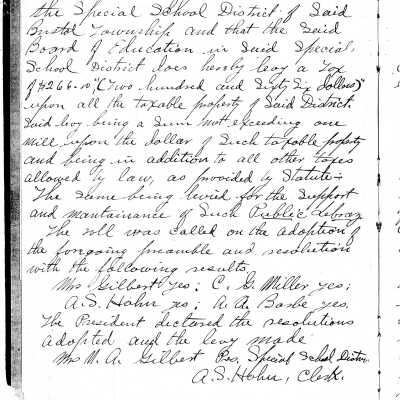 the Special School District of Said
Bristol Township and that the Said
Board of Education in Said Special
School District does hereby levy a Tax
of $266.00 "(Two hundred and Sixty Six Dollars)"
upon all the taxable property of Said District
Said levy being a Sum not exceeding one
mill upon the dollar of Such taxable property
and being in addition to all other taxes
allowed by law, as provided by Statute-
The Same being levied for the Support
and maintainance of Such Public Library
The roll was called on the adoption of
the foregoing preamble and resolution
with the following results,
Mrs Gilbert yes; C. G. Miller yes;
A. S. Hohn yes; A. A. Barbe yes.
The President declared the resolutions
adopted and the levy made
Mrs M. A. Gilbert Pres. Special School Distri
A. S. Hohn, Clerk.